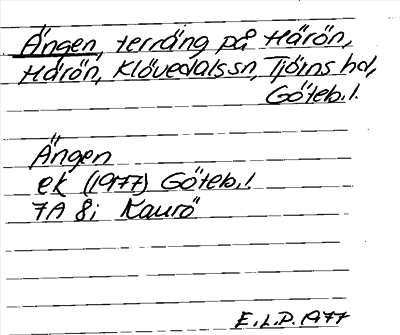 Ängen, terräng på Härön,
Härön, Klövedals sn, Tjörns hd,
Göteb. l.
Ängen
ek (1977) Göteb. l
7A 8i Kaurö
E.L.P. 1977